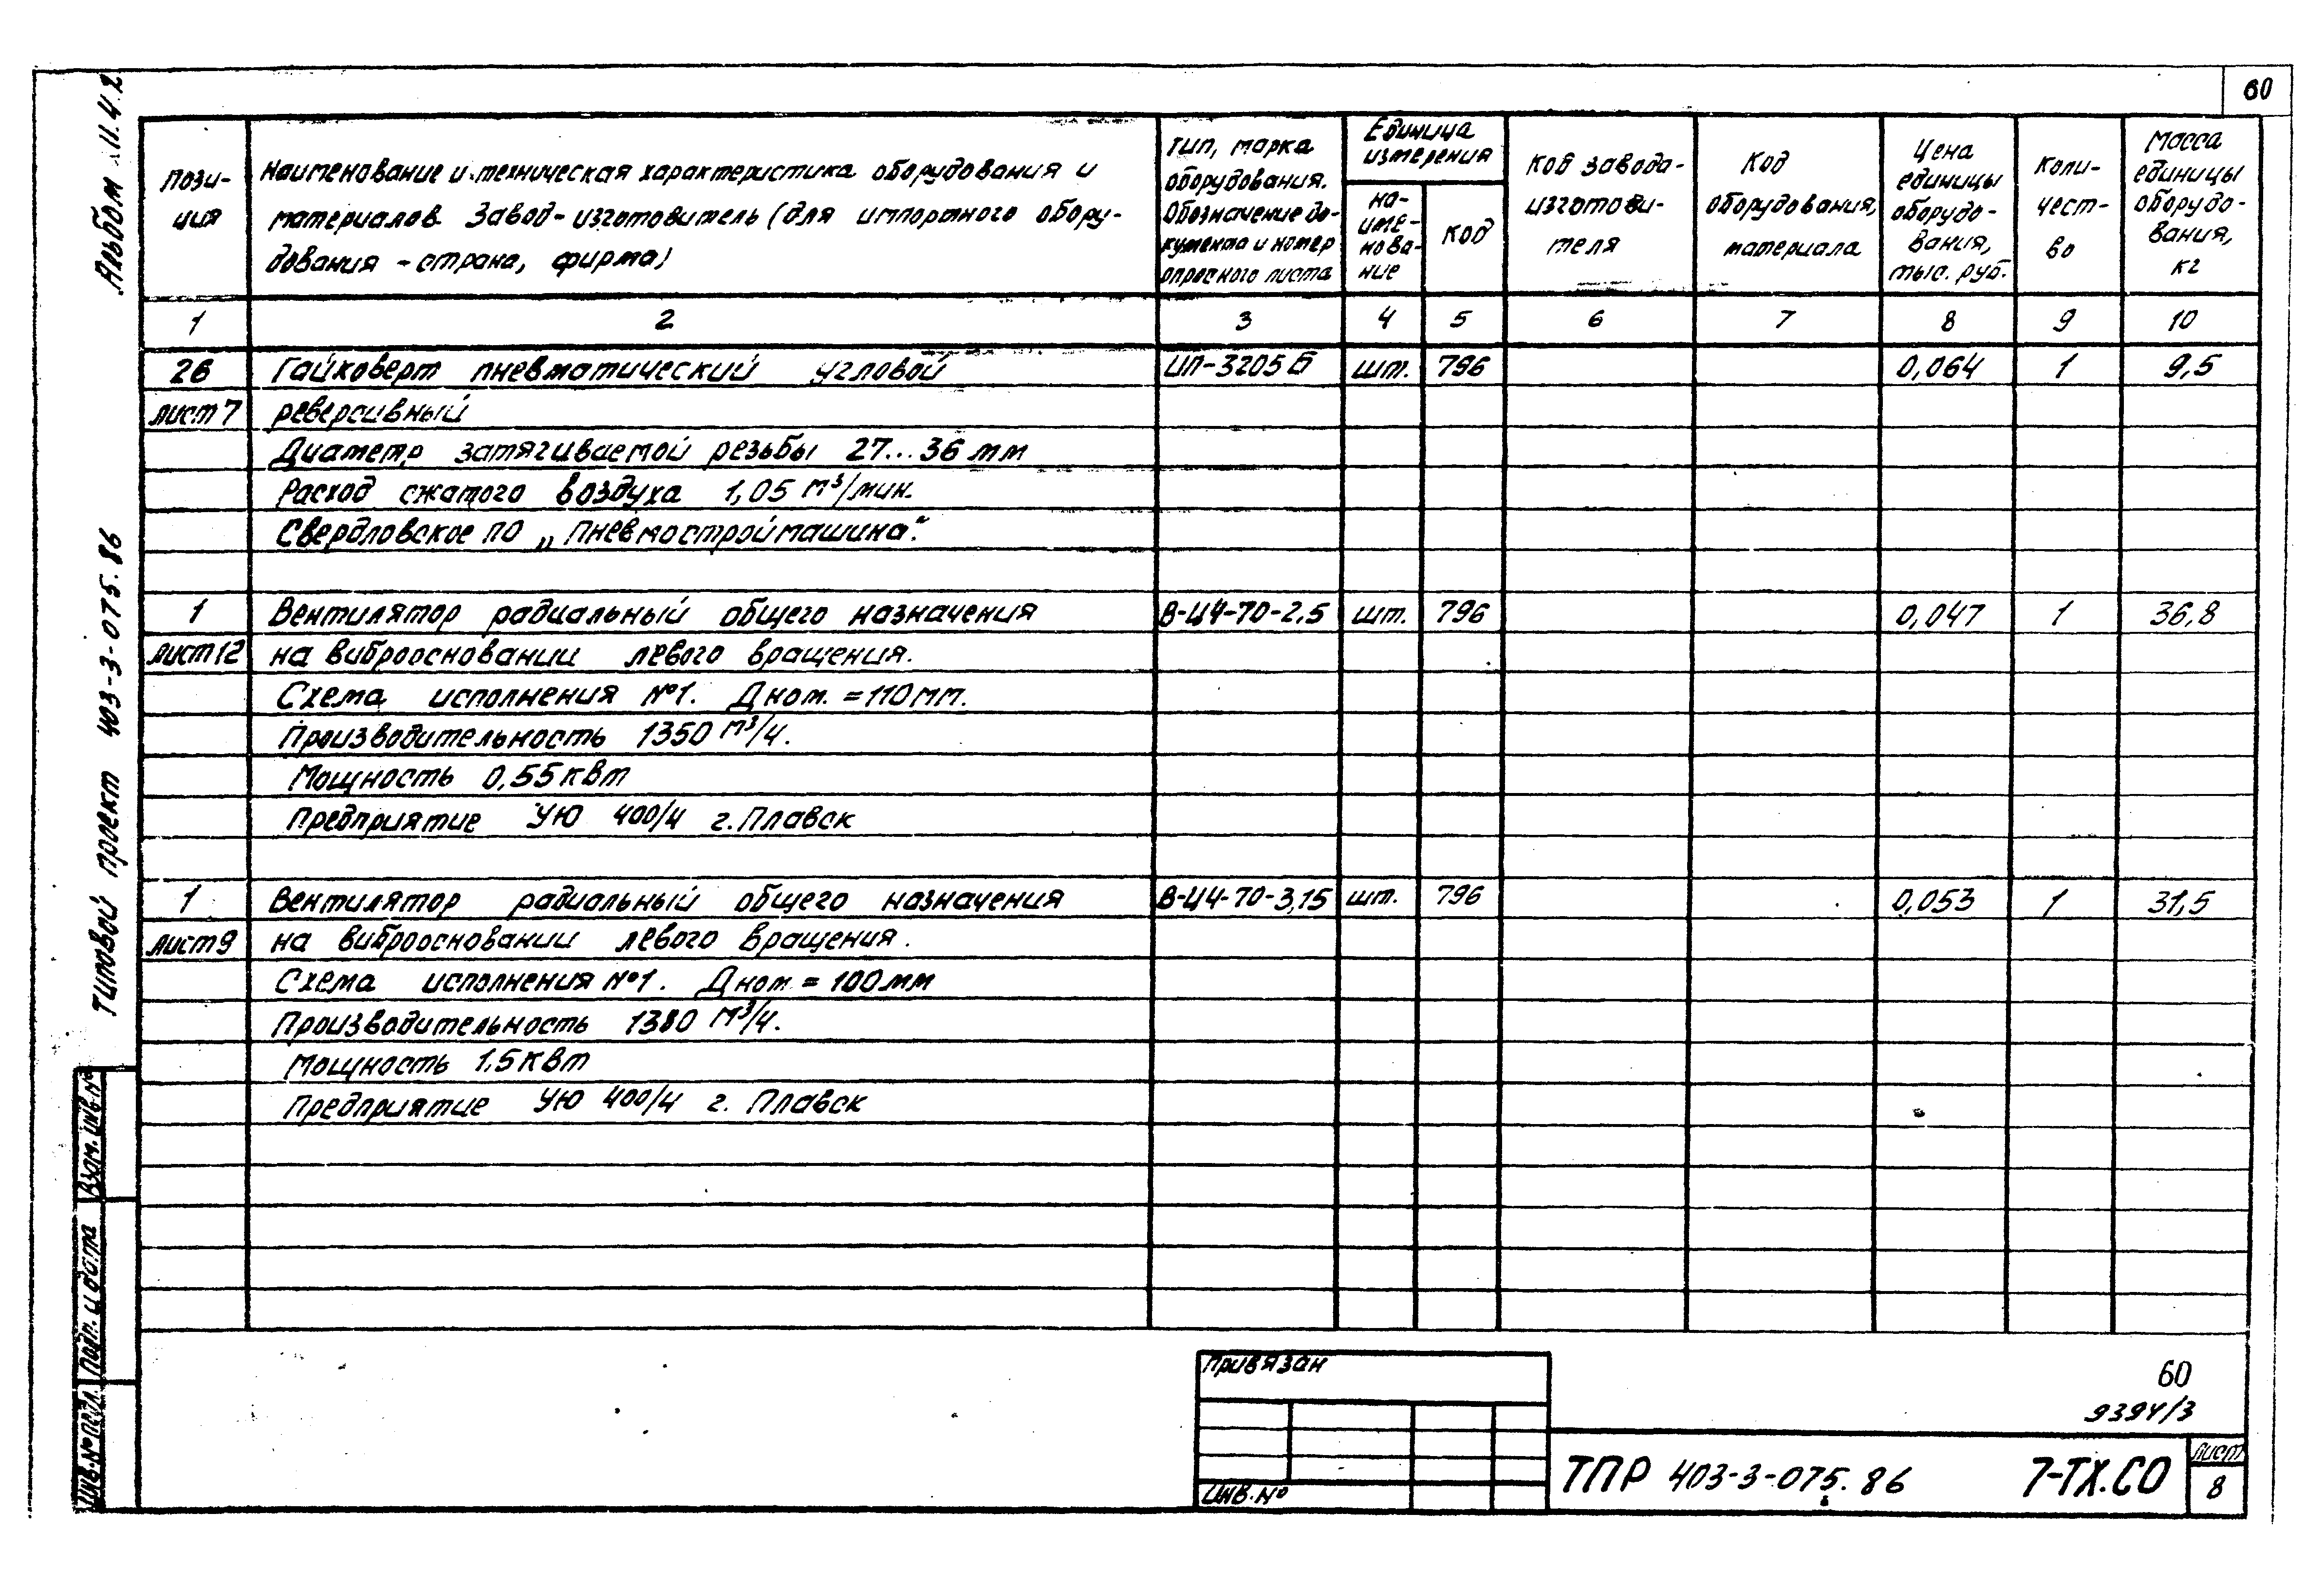 60
Альбом II.4.2
Типовой проект 403-3-075.86
Пози-
ция
Наименование и техническая характеристика оборудования и
материалов. Завод-изготовитель (для импортного обору-
дования - страна, фирма)
Тип, марка
оборудования.
Обозначение до-
кумента и номер
опросного листа
Единица
измерения
на-
име-
нова-
ние
Код
Код завода-
изготови-
теля
Код
оборудования,
материала
Цена
единицы
оборудо-
вания,
тыс. руб.
Коли-
чест-
во
Масса
единицы
оборудо-
вания,
кг
1 2 3 4 5 6 7 8 9 10
26 Гайковерт пневматический угловой ИП-3205Б шт. 796 0,064 1 9,5
лист 7 реверсивный
Диаметр затягиваемой резьбы 27...36 мм
Расход сжатого воздуха 1,05 м³/мин.
Свердловское ПО „Пневмостроймашина".
1 Вентилятор радиальный общего назначения В-Ц4-70-2,5 шт. 796 0,047 1 36,8
лист 12 на виброосновании левого вращения.
Схема исполнения №1. Дном. = 110 мм.
Производительность 1350 м³/ч.
Мощность 0,55 квт
Предприятие УЮ 400/4 г. Плавск
1 Вентилятор радиальный общего назначения В-Ц4-70-3,15 шт. 796 0,053 1 31,5
лист 9 на виброосновании левого вращения.
Схема исполнения №1. Дном. = 100 мм
Производительность 1380 м³/ч.
Мощность 1.5 квт
Предприятие УЮ 400/4 г. Плавск
Взам. инв. №
Подп. и дата
Инв. № подл.
Привязан
Инв. №
60
9394/3
ТПР 403-3-075.86 7-ТХ.СО
Лист
8